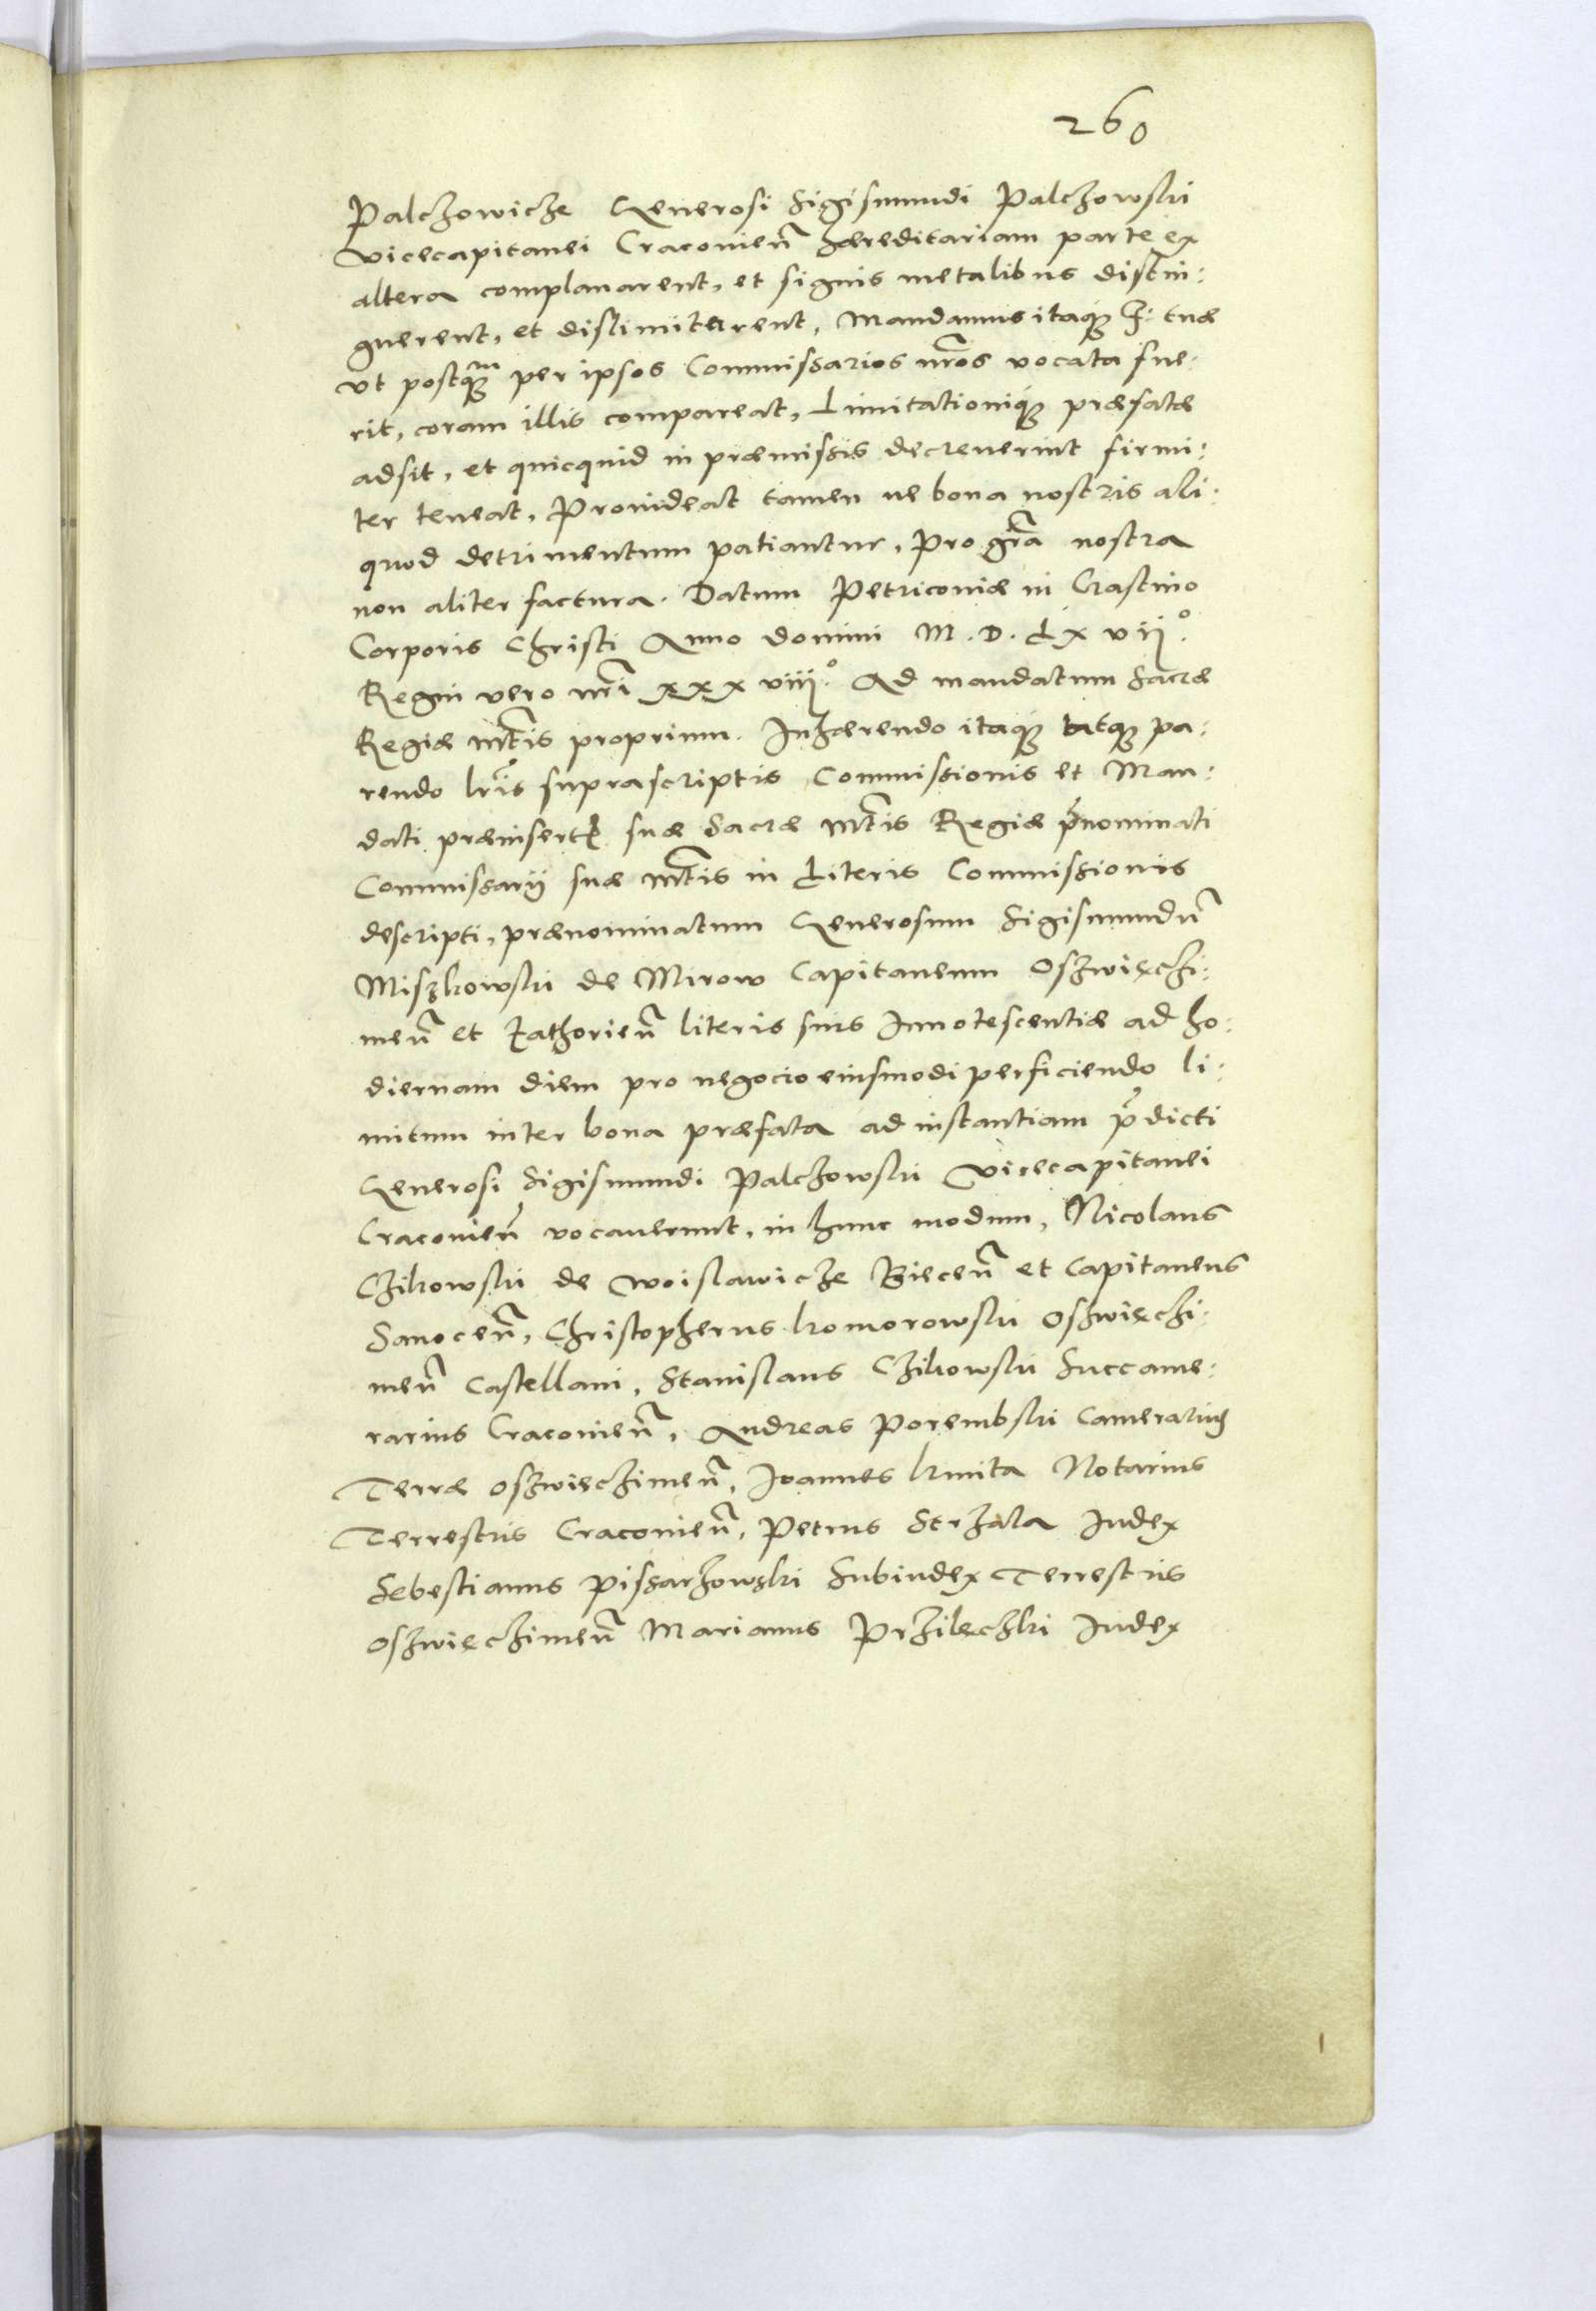 260
Palchowicze Generosi Sigismundi Palczowski
vicecapitanei Cracovieñ hæreditariam parte ex
altera complanarent, et signis metalibus distin:
guerent, et dislimitarent, Mandamus itaq̃ F: tuæ
Ut postq̃m per ipsos Commissarios nr̃os vocata fue:
rit, coram illis compareat, Limitationiq̃ præfatæ
adsit, et quicquid in præmissis decreuerint firmi:
ter teneat, Prouideat tamen ne bona nostris ali:
quod detrimentum patiantur, pro gr̃a nostra
non aliter factura. Datum Petricouiæ in Crastino
Corporis Christi Anno domini M. D. Lx vij°.
Regni vero nr̃i xxx viij°. Ad mandatum Sacræ
Regiæ Mt̃is proprium. Inhærendo itaq̃ atq̃ pa:
rendo lr̃is suprascriptis Commissionis et Man:
dati præinsertis suæ Sacræ Mt̃is Regiæ p̃nominati
Commissarij suæ Mt̃is in Literis Commissionis
descripti, prænominatum Generosum Sigismundũ
Miszkowski de Mirow Capitaneum Oszwięczi:
meñ et Zathorieñ literis suis Innotescentiæ ad ho:
diernam diem pro negocio eiusmodi perficiendo li:
mitum inter bona præfata ad instantiam p̃dicti
Generosi Sigismundi Palczowski Vicecapitanei
Cracovieñ vocauerunt, in hunc modum, Nicolaus
Czikowski de Woislawicze Bieceñ et Capitaneus
Sanoceñ, Christopherus Komorowski Oszwięczi:
meñ Castellani, Stanislaus Czikowski Succame:
rarius Cracovieñ, Andreas Porembski Camerarius
Terræ Oszwieczimeñ, Ioannes Kmita Notarius
Terrestris Cracovieñ, Petrus Strzala Iudex
Sebestianus Pissarzowski Subiudex Terrestris
Oszwięczimeñ Marianus Przilęczki Iudex